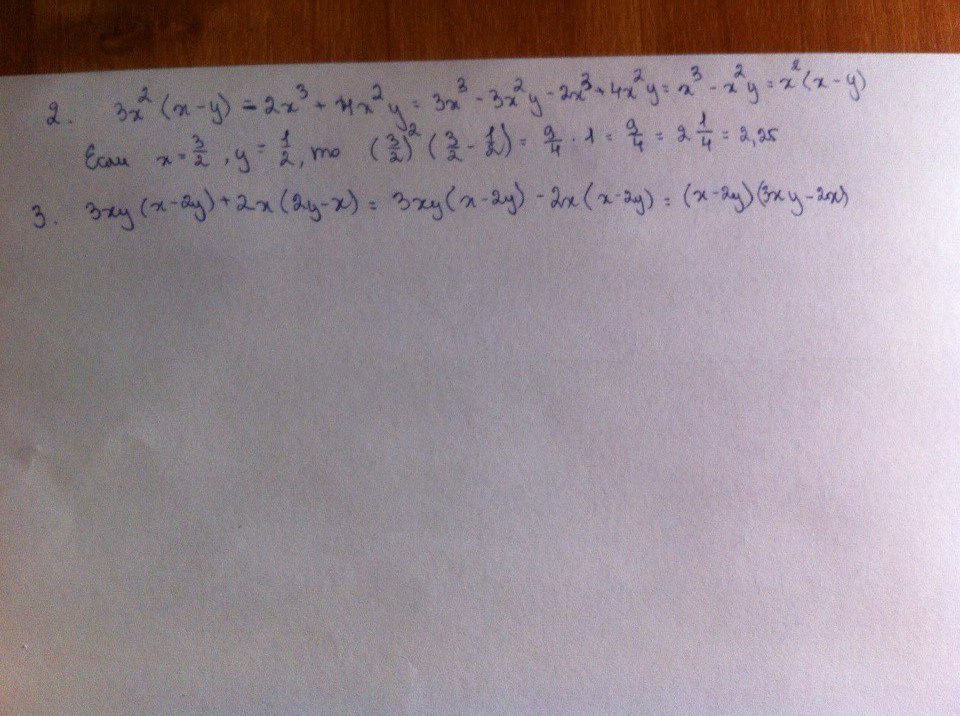 2. 3x²(x-y) - 2x³ + 4x²y = 3x³ - 3x²y - 2x³ + 4x²y = x³ - x²y = x²(x-y)
Если x = 3/2, y = 1/2, то (3/2)² (3/2 - 1/2) = 9/4 · 1 = 9/4 = 2 1/4 = 2,25
3. 3xy(x-2y) + 2x(2y-x) = 3xy(x-2y) - 2x(x-2y) = (x-2y)(3xy-2x)